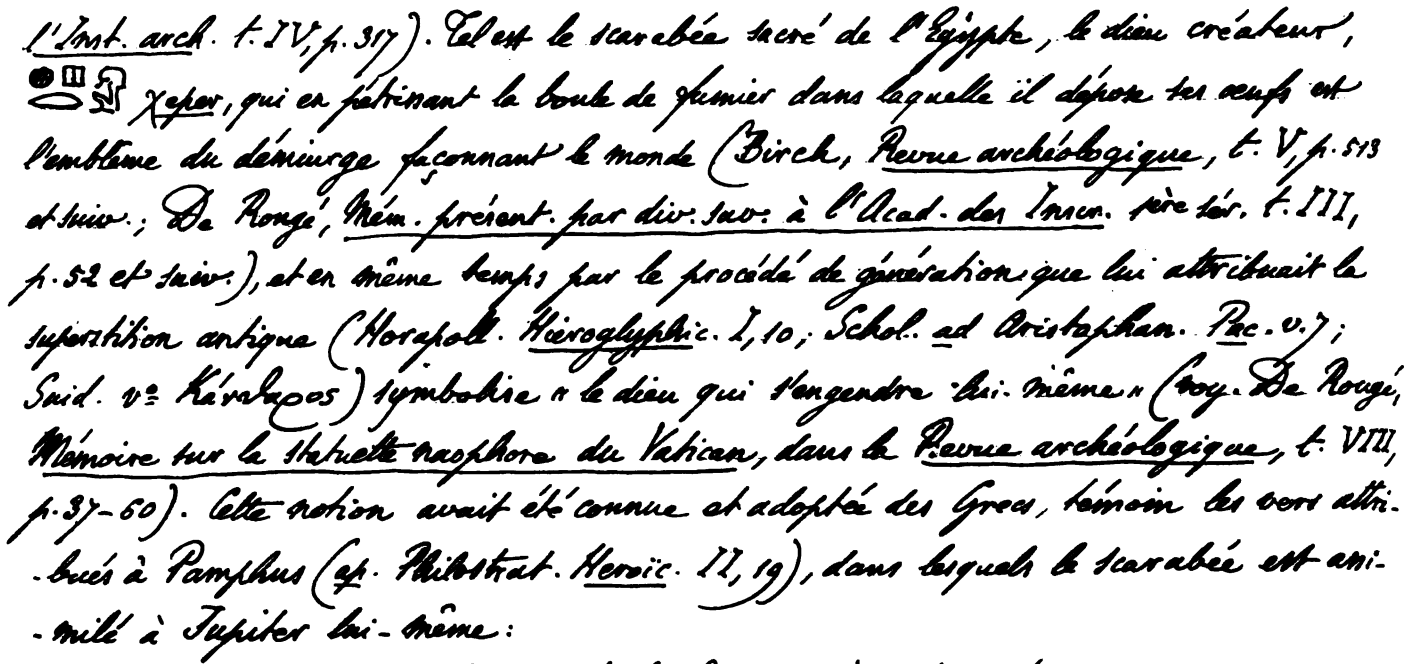 l'Inst. arch. t. IV, p. 317). Tel est le scarabée sacré de l'Egypte, le dieu créateur,
χeper, qui en pétrissant la boule de fumier dans laquelle il dépose ses œufs est
l'emblème du démiurge façonnant le monde (Birch, Revue archéologique, t. V, p. 513
et suiv.; De Rougé, Mém. présent. par div. sav. à l'Acad. des Inscr. 1ère sér. t. III,
p. 52 et suiv.), et en même temps par le procédé de génération que lui attribuait la
superstition antique (Horapoll. Hieroglyphic. I, 10; Schol. ad Aristophan. Pac. v. 7;
Suid. vº Κάνθαρος) symbolise « le dieu qui s'engendre lui-même » (voy. De Rougé,
Mémoire sur la statuette naophore du Vatican, dans la Revue archéologique, t. VIII,
p. 37-60). Cette notion avait été connue et adoptée des Grecs, témoin les vers attri-
-bués à Pamphus (ap. Philostrat. Heroïc. II, 19), dans lesquels le scarabée est assi-
-milé à Jupiter lui-même: